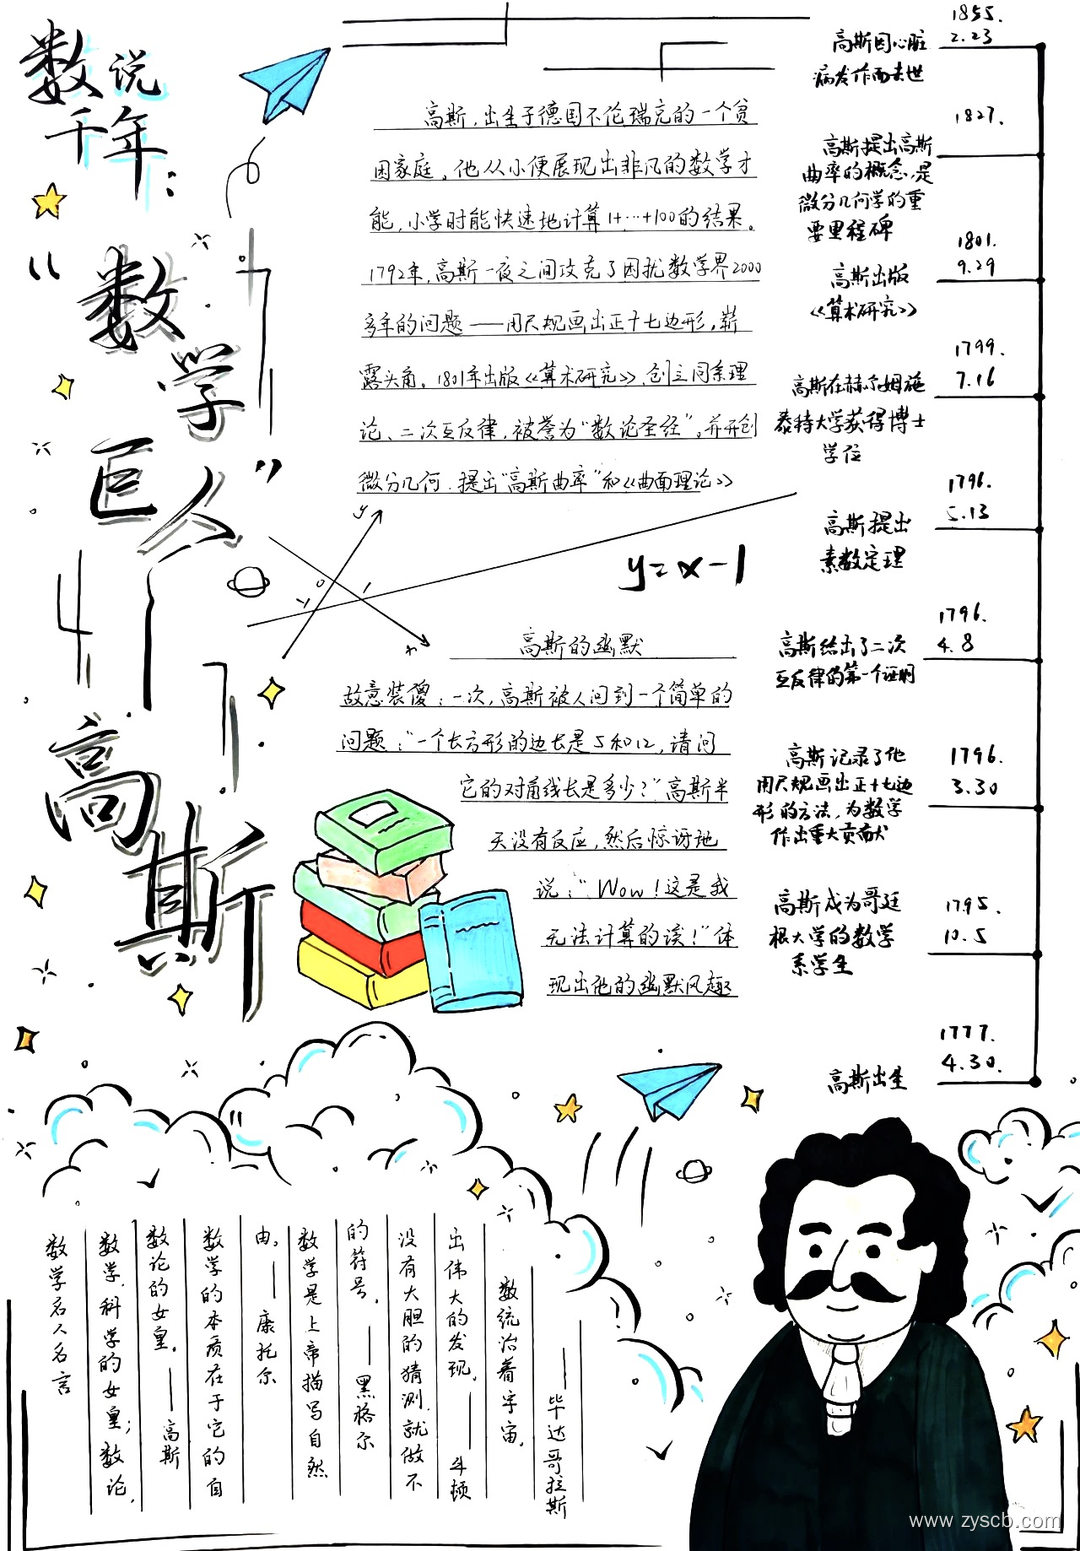 数说
千年：
“数
学
巨
人”
高
斯
高斯，出生于德国不伦瑞克的一个贫
困家庭。他从小便展现出非凡的数学才
能，小学时能快速地计算1+…+100的结果。
1792年，高斯一夜之间攻克了困扰数学界2000
多年的问题——用尺规画出正十七边形，崭
露头角。1801年出版《算术研究》，创立同余理
论、二次互反律，被誉为“数论圣经”。并开创
微分几何，提出“高斯曲率”和《曲面理论》
y
0
1
-1
x
y=x-1
高斯的幽默
故意装傻：一次，高斯被人问到一个简单的
问题：“一个长方形的边长是5和12，请问
它的对角线长是多少？”高斯半
天没有反应，然后惊讶地
说：“Wow！这是我
无法计算的误！”体
现出他的幽默风趣
1855.
2.23
高斯因心脏
病发作而去世
1827.
高斯提出高斯
曲率的概念，是
微分几何学的重
要里程碑
1801.
9.29
高斯出版
《算术研究》
1799.
7.16
高斯在赫尔姆施
泰特大学获得博士
学位
1796.
5.13
高斯提出
素数定理
1796.
4.8
高斯给出了二次
互反律的第一个证明
1796.
3.30
高斯记录了他
用尺规画出正十七边
形的方法，为数学
作出重大贡献
1795.
10.5
高斯成为哥廷
根大学的数学
系学生
1777.
4.30.
高斯出生
数学名人名言
数学，科学的女皇；数论，
数论的女皇。——高斯
数学的本质在于它的自
由。——康托尔
数学是上帝描写自然
的符号。——黑格尔
没有大胆的猜测，就做不
出伟大的发现。——牛顿
数统治着宇宙。
——毕达哥拉斯
www.zyscb.com